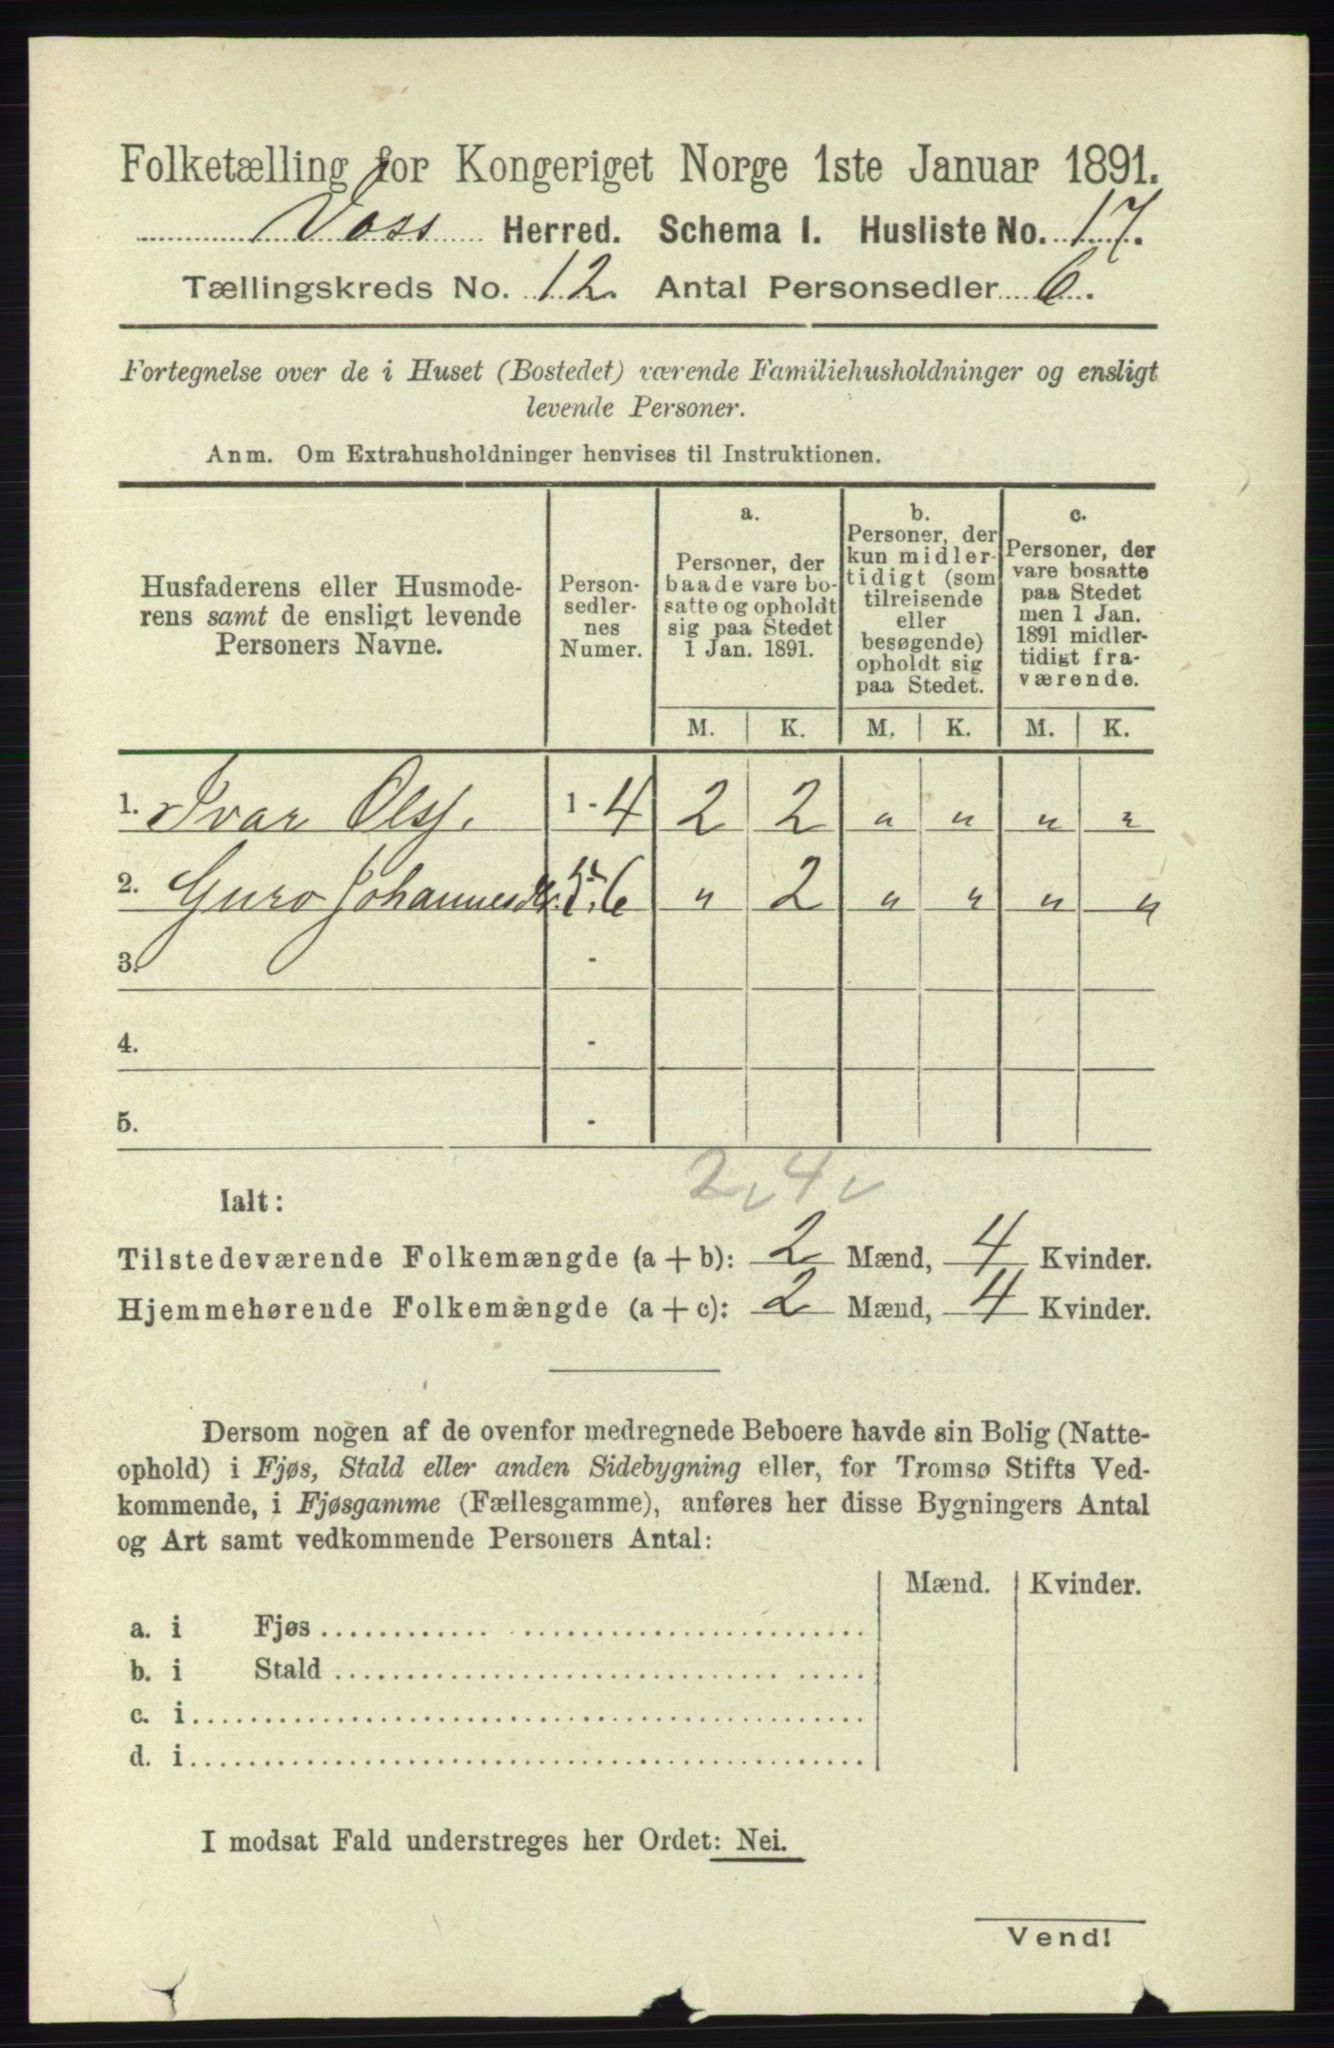 Folketælling for Kongeriget Norge 1ste Januar 1891.
Voss Herred. Schema I. Husliste No. 17.
Tællingskreds No. 12. Antal Personsedler 6.
Fortegnelse over de i Huset (Bostedet) værende Familiehusholdninger og ensligt
levende Personer.
Anm. Om Extrahusholdninger henvises til Instruktionen.
Husfaderens eller Husmode-
rens samt de ensligt levende
Personers Navne.
Person-
sedler-
nes
Numer.
a.
Personer, der
baade vare bo-
satte og opholdt
sig paa Stedet
1 Jan. 1891.
b.
Personer, der
kun midler-
tidigt (som
tilreisende
eller
besøgende)
opholdt sig
paa Stedet.
c.
Personer, der
vare bosatte
paa Stedet
men 1 Jan.
1891 midler-
tidigt fra-
værende.
M. K. M. K. M. K.
1. Ivar Olss. 1 - 4 2 2 " " " "
2. Guro Johannesdr. 5-6 " 2 " " " "
3. -
4. -
5. -
2 4
Ialt:
Tilstedeværende Folkemængde (a + b): 2 Mænd, 4 Kvinder.
Hjemmehørende Folkemængde (a + c): 2 Mænd, 4 Kvinder.
Dersom nogen af de ovenfor medregnede Beboere havde sin Bolig (Natte-
ophold) i Fjøs, Stald eller anden Sidebygning eller, for Tromsø Stifts Ved-
kommende, i Fjøsgamme (Fællesgamme), anføres her disse Bygningers Antal
og Art samt vedkommende Personers Antal:
Mænd. Kvinder.
a. i Fjøs
b. i Stald
c. i
d. i
I modsat Fald understreges her Ordet: Nei.
Vend!